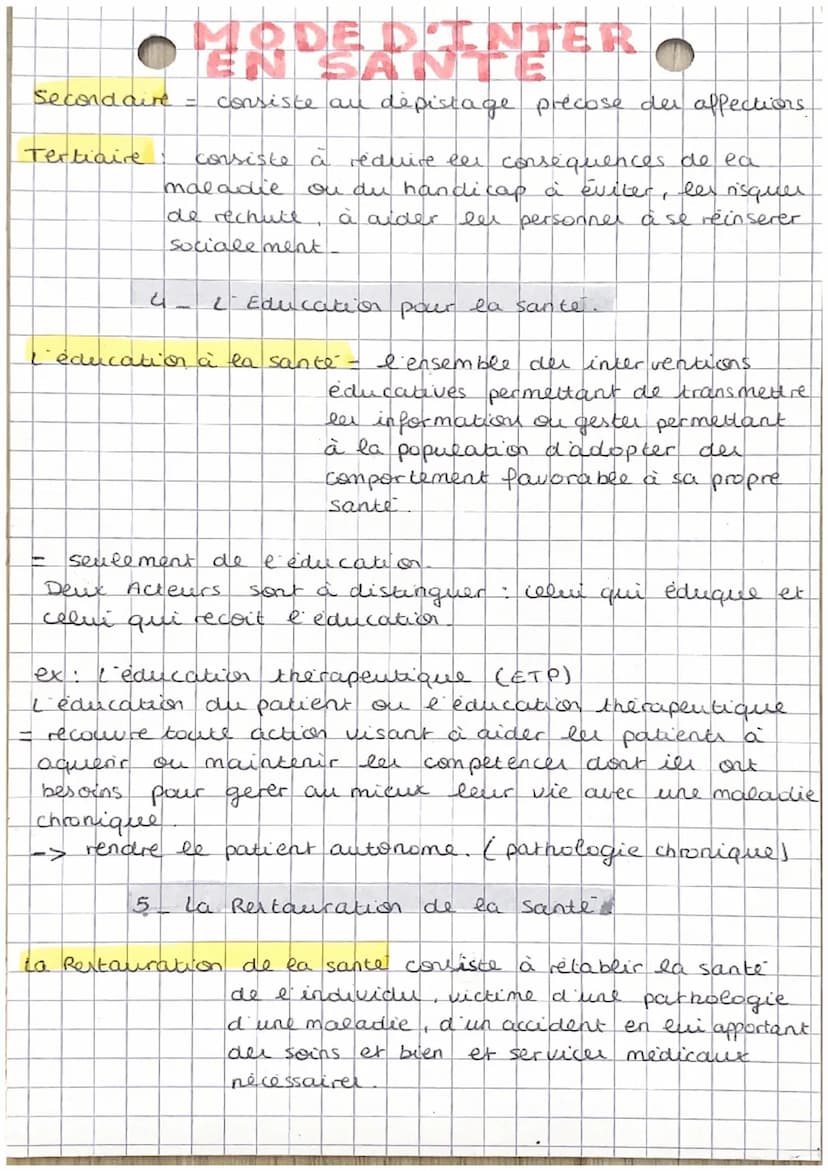 MODE D'INTER
EN SANTE
Secondaire = consiste au dépistage précose des affections
Tertiaire : consiste à réduire les conséquences de la
maladie ou du handicap à éviter, les risques
de rechute, à aider les personnes à se réinserer
socialement_
4_ L'Education pour la santé.
L'éducation à la santé = l'ensemble des interventions
éducatives permettant de transmettre
les informations ou gestes permettant
à la population d'adopter des
comportement favorable à sa propre
santé.
= seulement de l'éducation.
Deux Acteurs sont à distinguer : celui qui éduque et
celui qui recoit l'éducation.
ex : L'éducation thérapeutique (ETP)
L'éducation du patient ou l'éducation thérapeutique
= recouvre toute action visant à aider les patients à
aquérir ou maintenir les compétences dont ils ont
besoins pour gérer au mieux leur vie avec une maladie
chronique.
-> rendre le patient autonome. (pathologie chronique)
5_ La Restauration de la santé
La Restauration de la santé consiste à rétablir la santé
de l'individu, victime d'une pathologie
d'une maladie, d'un accident en lui apportant
des soins et bien et services médicaux
nécessaires.